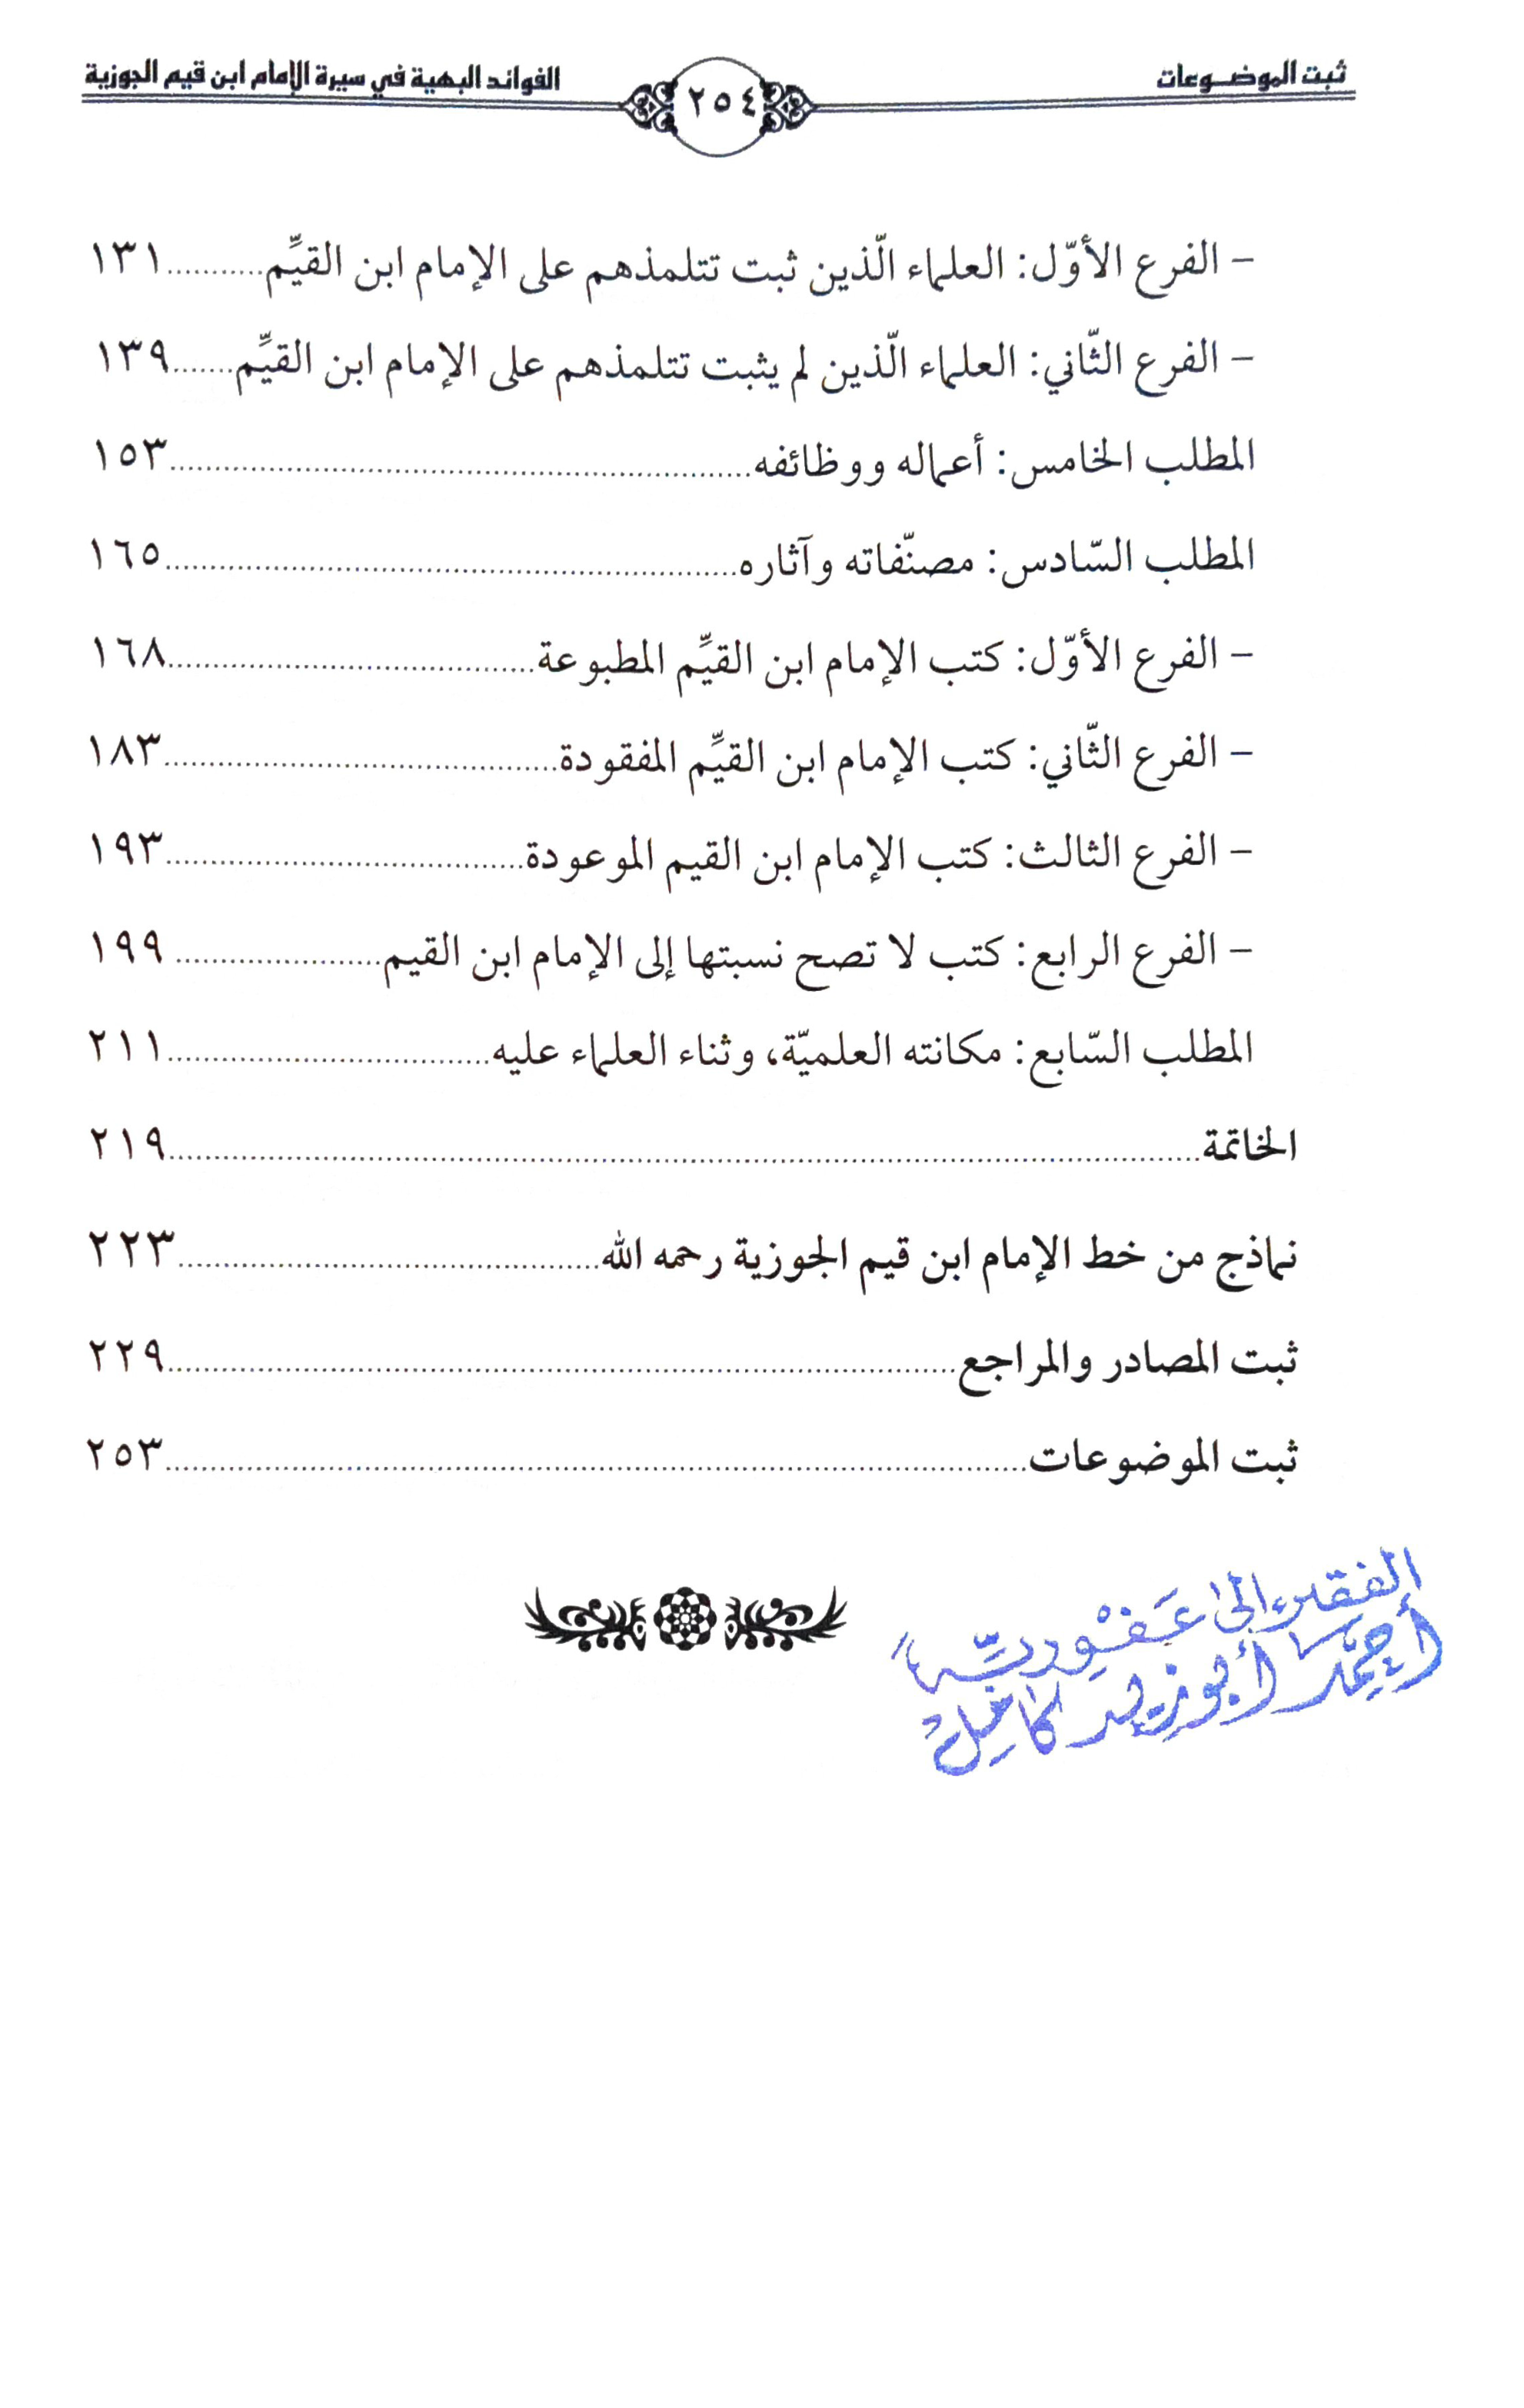 ثبت الموضـوعات ٢٥٤ الفوائد البهية في سيرة الإمام ابن قيم الجوزية
– الفرع الأوّل: العلماء الّذين ثبت تتلمذهم على الإمام ابن القيِّم...........١٣١
– الفرع الثّاني: العلماء الّذين لم يثبت تتلمذهم على الإمام ابن القيِّم.......١٣٩
المطلب الخامس: أعماله ووظائفه..........................................................١٥٣
المطلب السّادس: مصنّفاته وآثاره.........................................................١٦٥
– الفرع الأوّل: كتب الإمام ابن القيِّم المطبوعة.....................................١٦٨
– الفرع الثّاني: كتب الإمام ابن القيِّم المفقودة.......................................١٨٣
– الفرع الثالث: كتب الإمام ابن القيم الموعودة....................................١٩٣
– الفرع الرابع: كتب لا تصح نسبتها إلى الإمام ابن القيم.....................١٩٩
المطلب السّابع: مكانته العلميّة، وثناء العلماء عليه................................٢١١
الخاتمة.......................................................................................................٢١٩
نماذج من خط الإمام ابن قيم الجوزية رحمه الله..........................................٢٢٣
ثبت المصادر والمراجع...............................................................................٢٢٩
ثبت الموضوعات......................................................................................٢٥٣
الفقير إلى عَفْوِ ربِّه
أحمد أبو زيد كامل